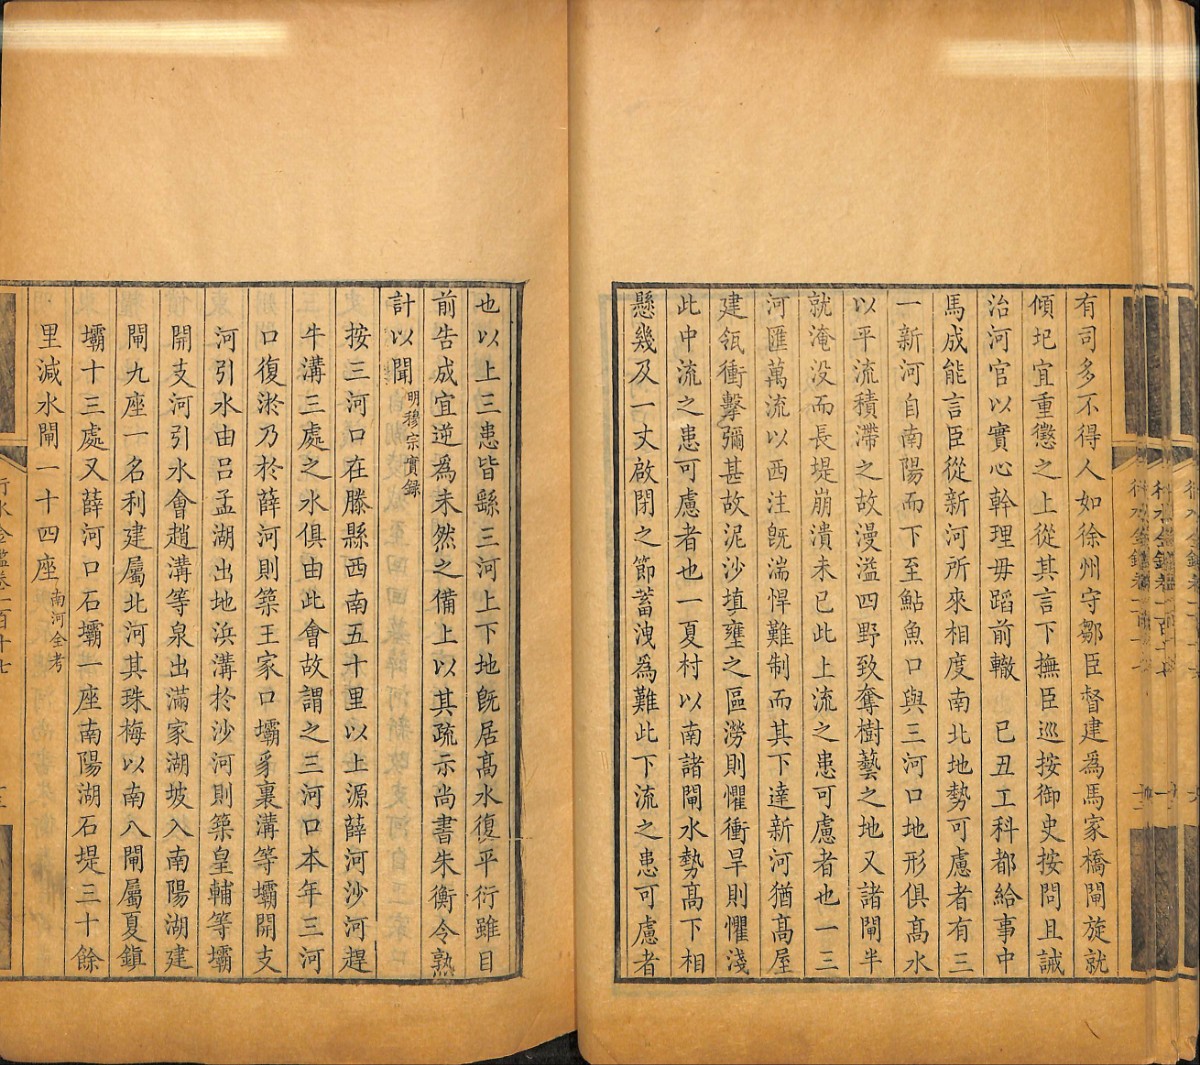 有司多不得人如徐州守鄒臣督建爲馬家橋閘旋就
傾圯宜重懲之上從其言下撫臣巡按御史按問且誡
治河官以實心幹理毋蹈前轍 已丑工科都給事中
馬成能言臣從新河所來相度南北地勢可慮者有三
一新河自南陽而下至鮎魚口與三河口地形俱高水
以平流積滯之故漫溢四野致奪樹藝之地又諸閘半
就淹没而長堤崩潰未已此上流之患可慮者也一三
河匯萬流以西注旣湍悍難制而其下達新河猶高屋
建瓴衝擊彌甚故泥沙填壅之區澇則懼衝旱則懼淺
此中流之患可慮者也一夏村以南諸閘水勢高下相
懸幾及一丈啟閉之節蓄洩爲難此下流之患可慮者
也以上三患皆繇三河上下地旣居高水復平衍雖目
前告成宜逆爲未然之備上以其疏示尚書朱衡令熟
計以聞明穆宗實録
按三河口在滕縣西南五十里以上源薛河沙河趕
牛溝三處之水俱由此會故謂之三河口本年三河
口復淤乃於薛河則築王家口壩豸裏溝等壩開支
河引水由呂孟湖出地浜溝於沙河則築皇輔等壩
開支河引水會趙溝等泉出滿家湖坡入南陽湖建
閘九座一名利建屬北河其珠梅以南八閘屬夏鎮
壩十三處又薛河口石壩一座南陽湖石堤三十餘
里減水閘一十四座南河全考
行水金鑑卷一百十七